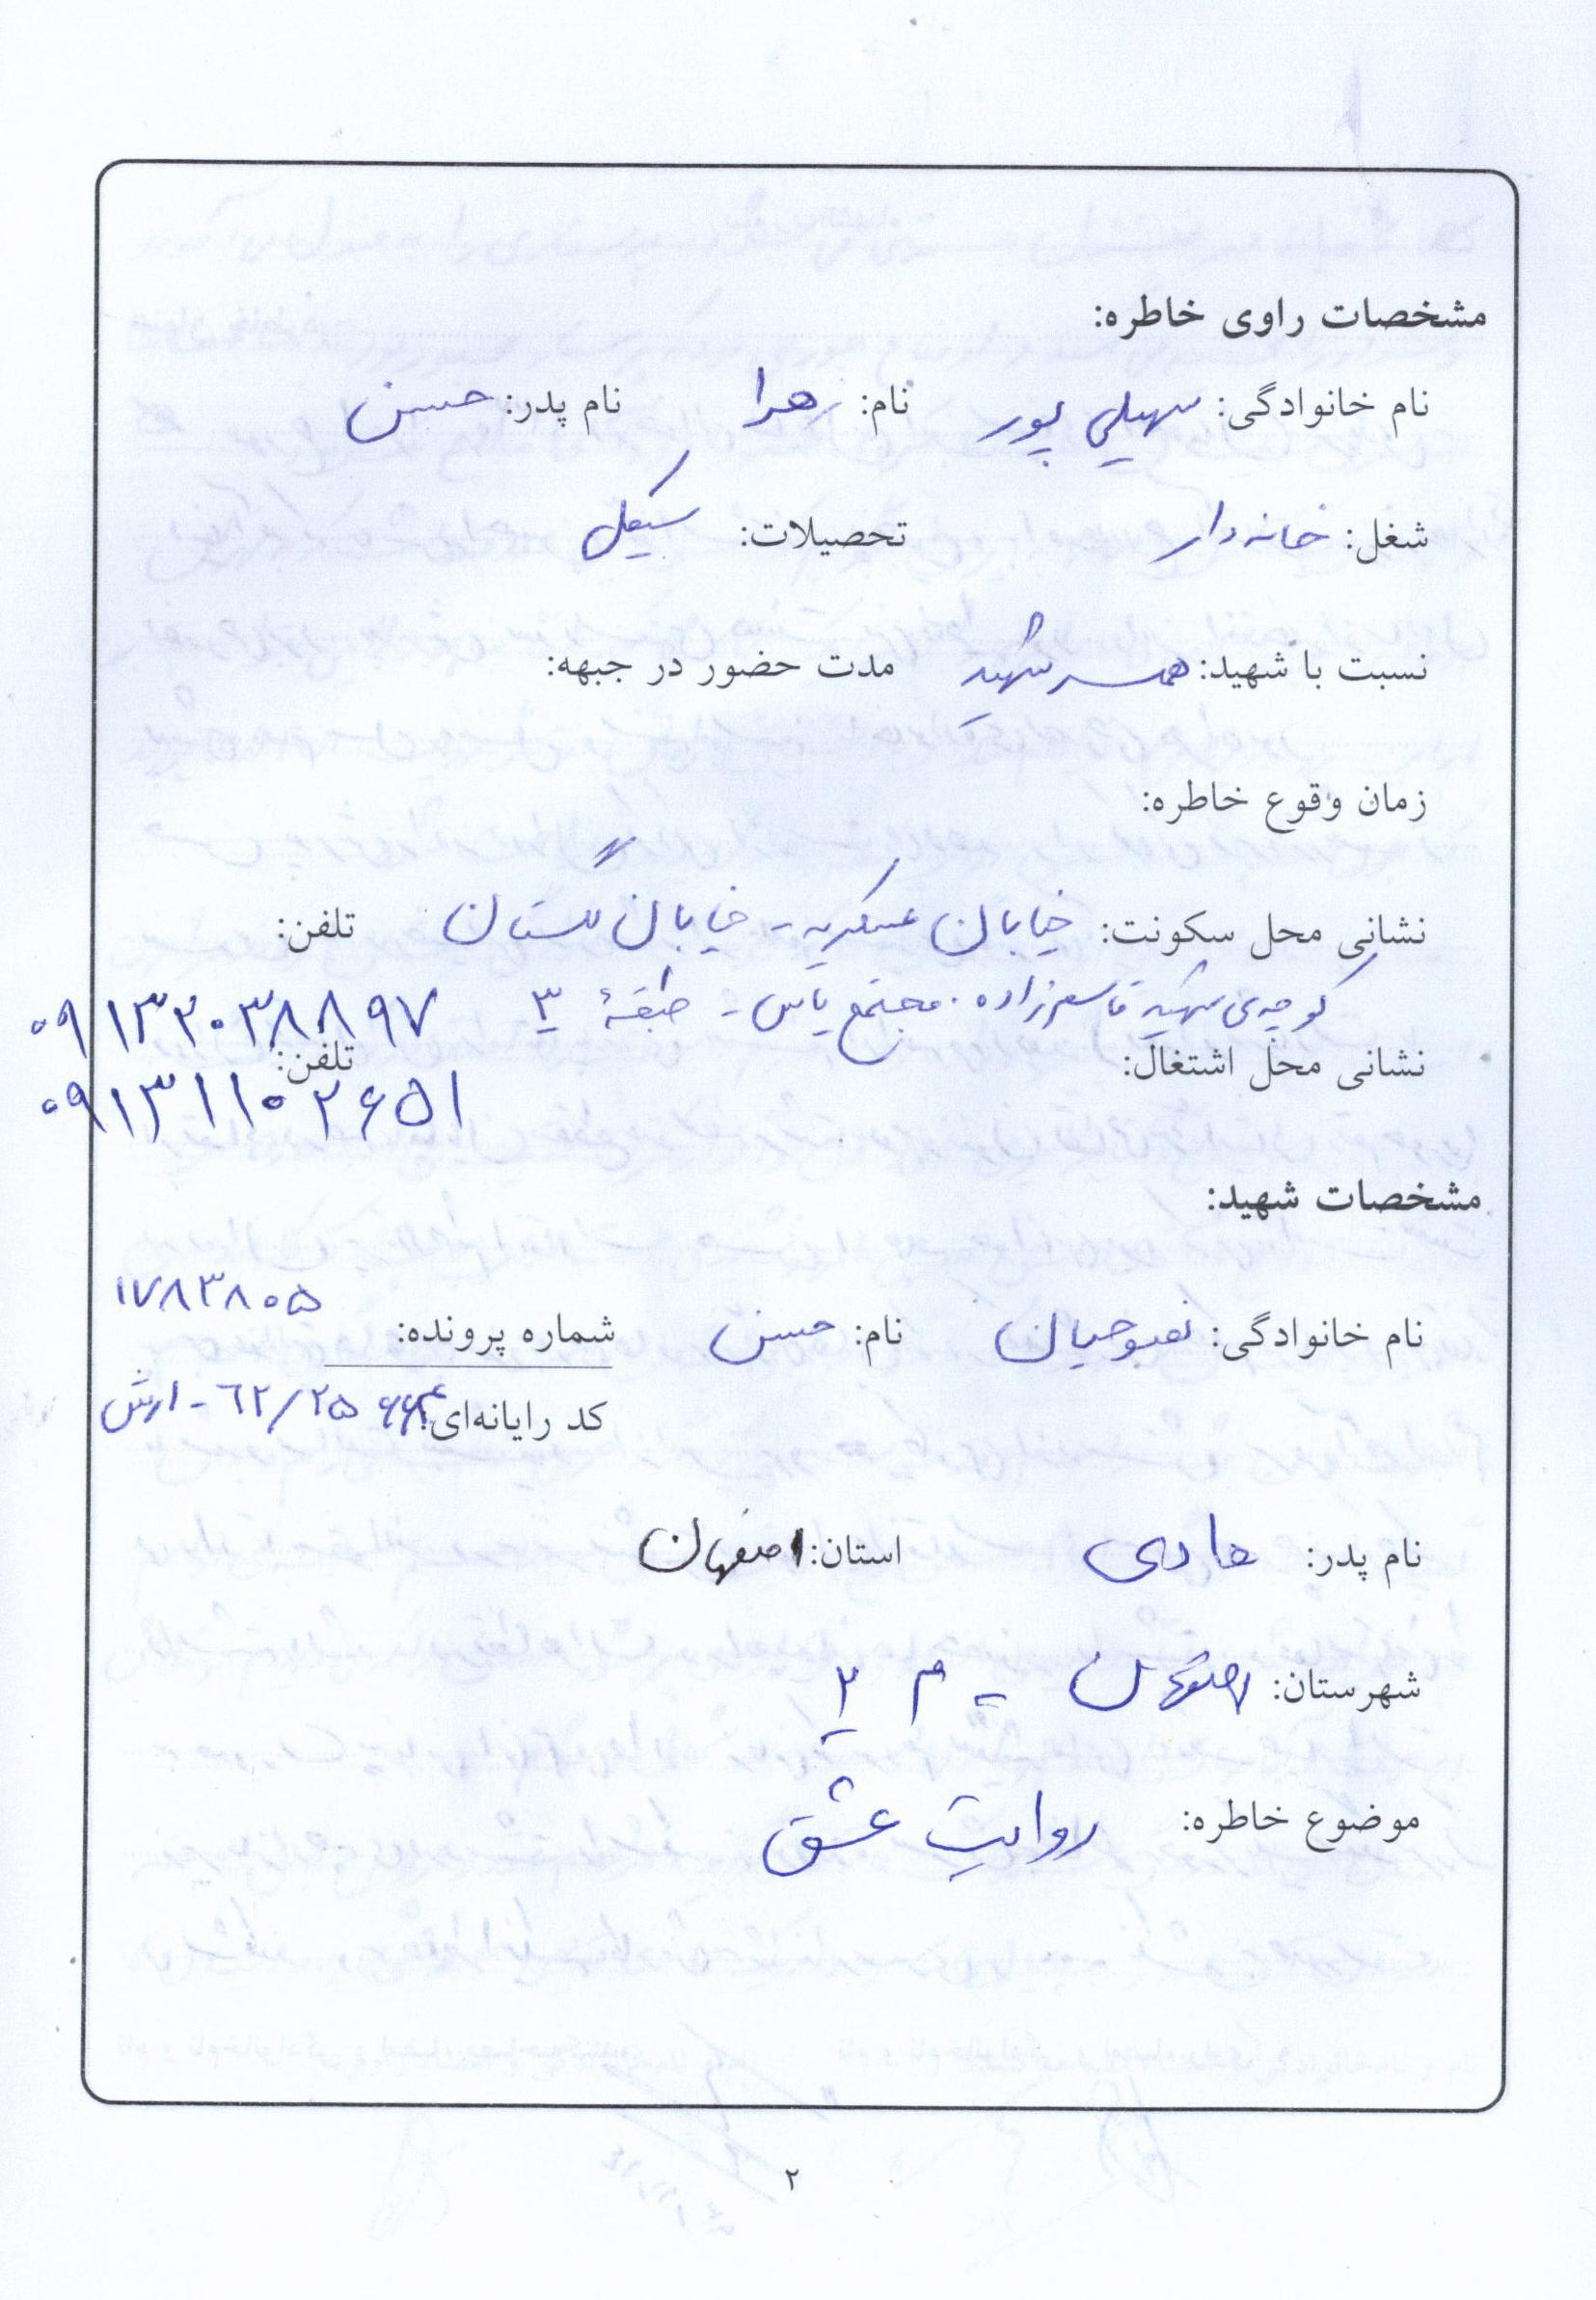 مشخصات راوی خاطره:
نام خانوادگی: سهیلی پور نام: زهرا نام پدر: حسن
شغل: خانه دار تحصیلات: سیکل
نسبت با شهید: همسر شهید مدت حضور در جبهه:
زمان وقوع خاطره:
نشانی محل سکونت: خیابان عسکریه - خیابان گلستان تلفن:
کوچه‌ی شهید قاسم زاده. مجتمع یاس - طبقهٔ ۳ ۰۹۱۳۲۰۳۸۸۹۷
نشانی محل اشتغال: تلفن:
۰۹۱۳۱۱۰۲۶۵۱
مشخصات شهید:
نام خانوادگی: نام: حسن شماره پرونده: ۱۷۸۳۸۰۵
کد رایانه‌ای: ۶۲/۲۵ - ارتش
نام پدر: هادی استان: اصفهان
شهرستان: اصفهان - م ۲
موضوع خاطره: روایت عشق
۲